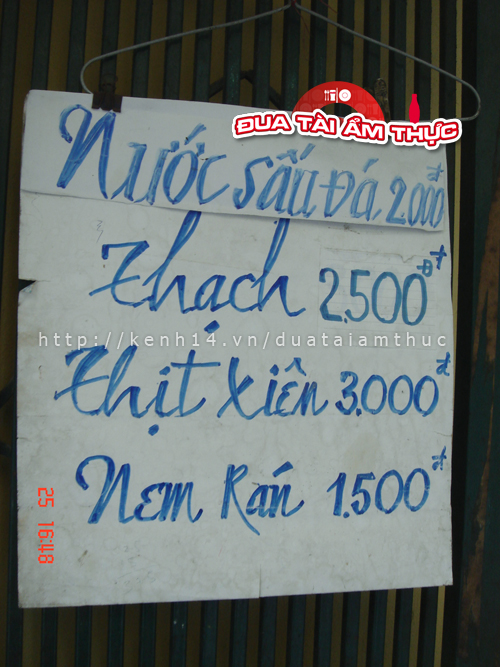 ĐUA TÀI ẨM THỰC
Nước sấu Đá 2.000đ
Thạch 2.500đ
http://kenh14.vn/duataiamthuc
Thịt xiên 3.000đ
Nem Rán 1.500đ
25 16:48